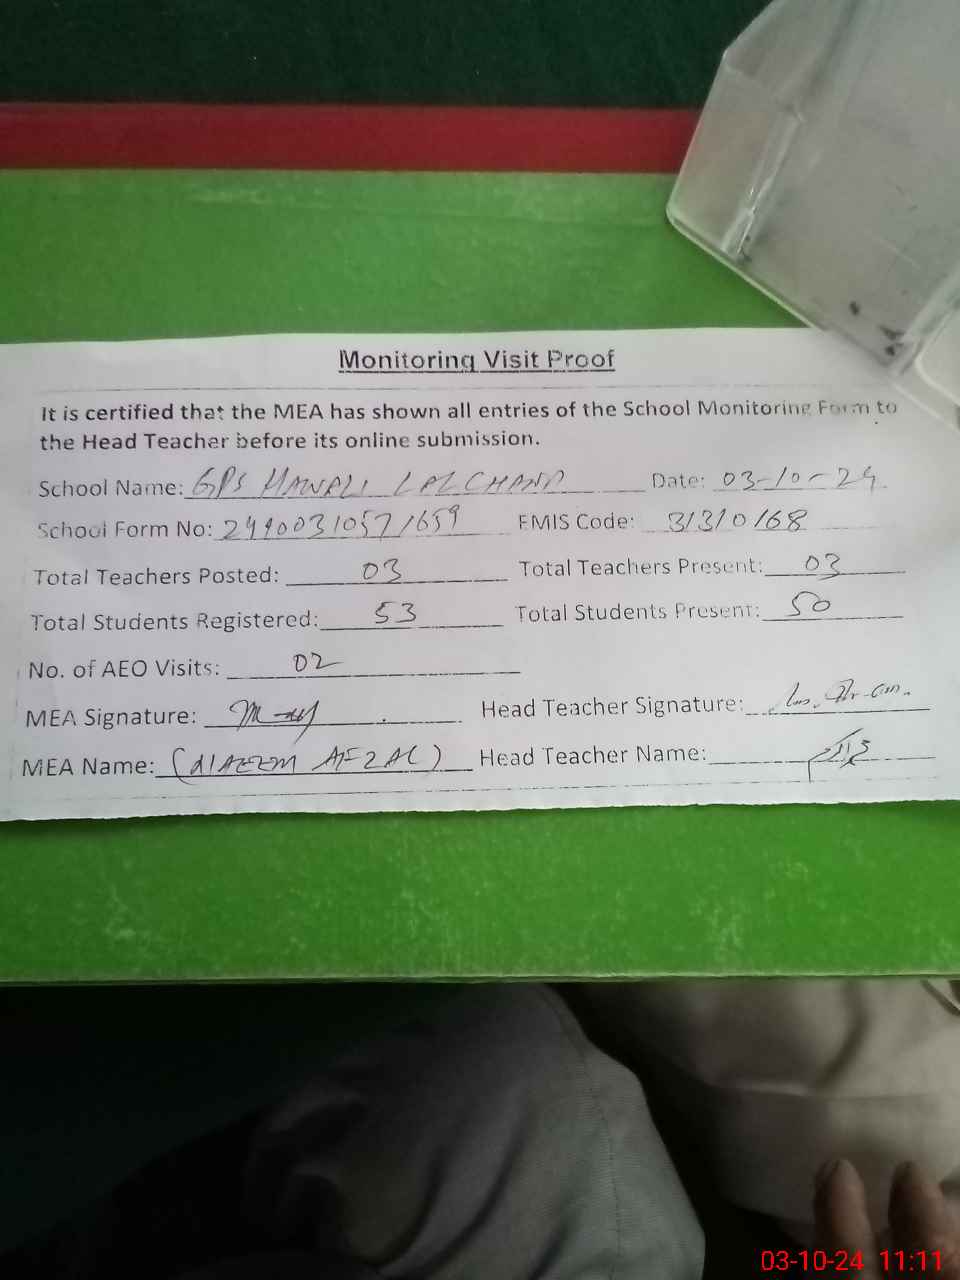 Monitoring Visit Proof
It is certified that the MEA has shown all entries of the School Monitoring Form to
the Head Teacher before its online submission.
School Name: GPS HAWALI LALCHAND Date: 03-10-24
School Form No: EMIS Code: 31310168
Total Teachers Posted: 03 Total Teachers Present: 03
Total Students Registered: 53 Total Students Present: 50
No. of AEO Visits: 02
MEA Signature: Head Teacher Signature:
MEA Name: (NAEEM AFZAL) Head Teacher Name:
03-10-24 11:11